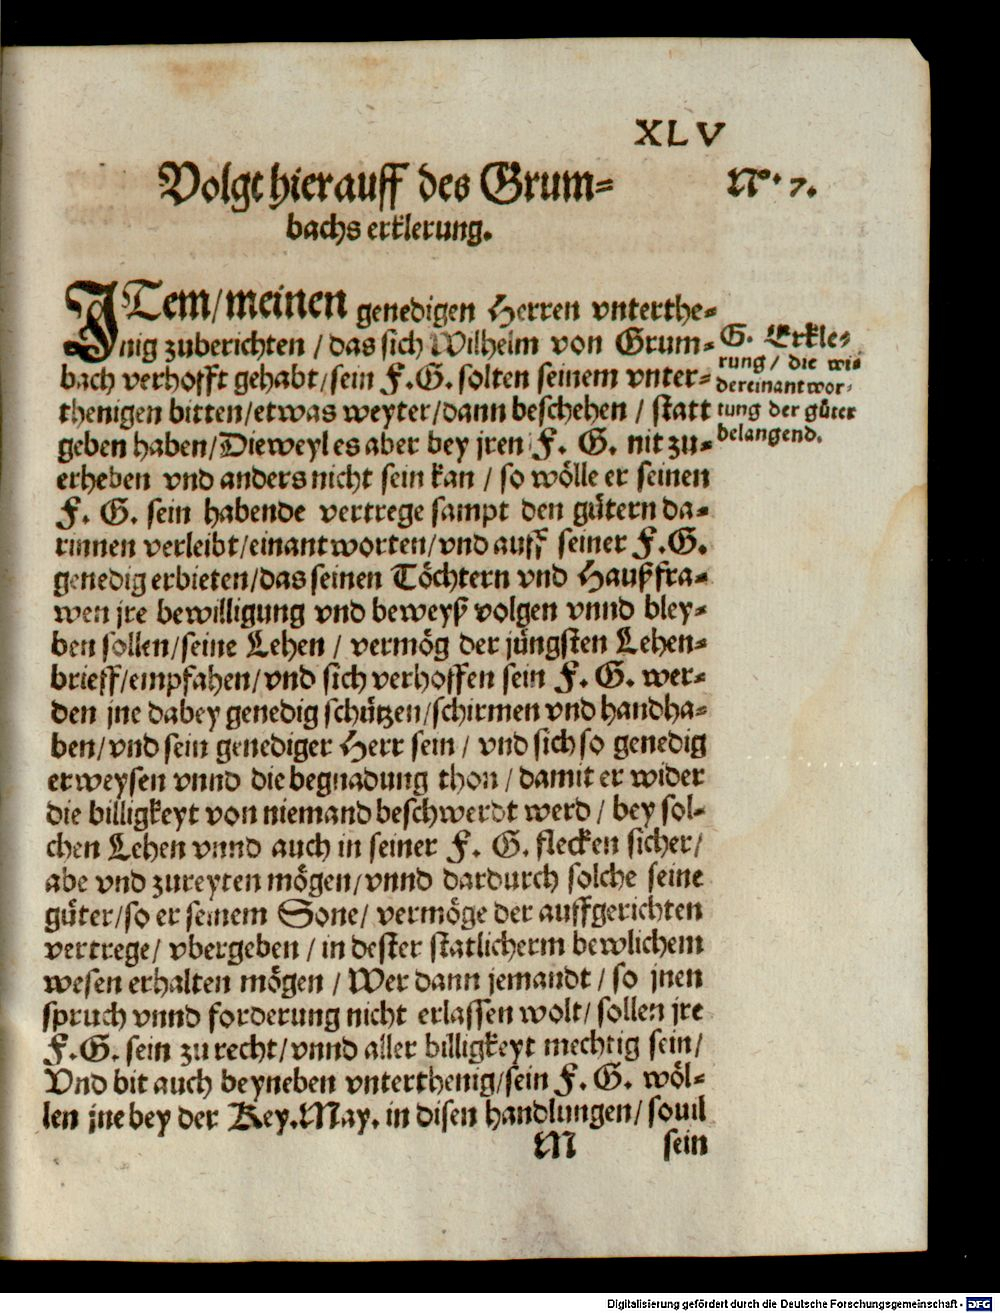 XLV
Volgt hierauff des Grum⸗
N°. 7.
bachs erklerung.
ITem/meinen genedigen Herren vnterthe⸗
nig zuberichten / das sich Wilhelm von Grum⸗
bach verhofft gehabt/sein F.G. solten seinem vnter⸗
thenigen bitten/etwas weyter/dann beschehen / statt
geben haben/Dieweyl es aber bey jren F. G. nit zu⸗
erheben vnd anders nicht sein kan / so wölle er seinen
F. G. sein habende vertrege sampt den gütern da⸗
rinnen verleibt/einantworten/vnd auff seiner F.G.
genedig erbieten/das seinen Töchtern vnd Haußfra⸗
wen jre bewilligung vnd beweyß volgen vnnd bley⸗
ben sollen/seine Lehen / vermög der jüngsten Lehen⸗
brieff/empfahen/vnd sich verhoffen sein F. G. wer⸗
den jne dabey genedig schützen/schirmen vnd handha⸗
ben/vnd sein genediger Herr sein / vnd sich so genedig
erweysen vnnd die begnadung thon / damit er wider
die billigkeyt von niemand beschwerdt werd / bey sol⸗
chen Lehen vnnd auch in seiner F. G. flecken sicher/
abe vnd zureyten mögen/vnnd dardurch solche seine
güter/so er seinem Sone/ vermöge der auffgerichten
vertrege/ vbergeben / in dester statlicherm bewlichem
wesen erhalten mögen / Wer dann jemandt / so jnen
spruch vnnd forderung nicht erlassen wolt/ sollen jre
F.G. sein zu recht/vnnd aller billigkeyt mechtig sein/
Vnd bit auch beyneben vnterthenig/sein F. G. wöl⸗
len jne bey der Key.May. in disen handlungen/ souil
M sein
G. Erkle⸗
rung / die wi⸗
dereinantwor⸗
tung der güter
belangend.
Digitalisierung gefördert durch die Deutsche Forschungsgemeinschaft - DFG